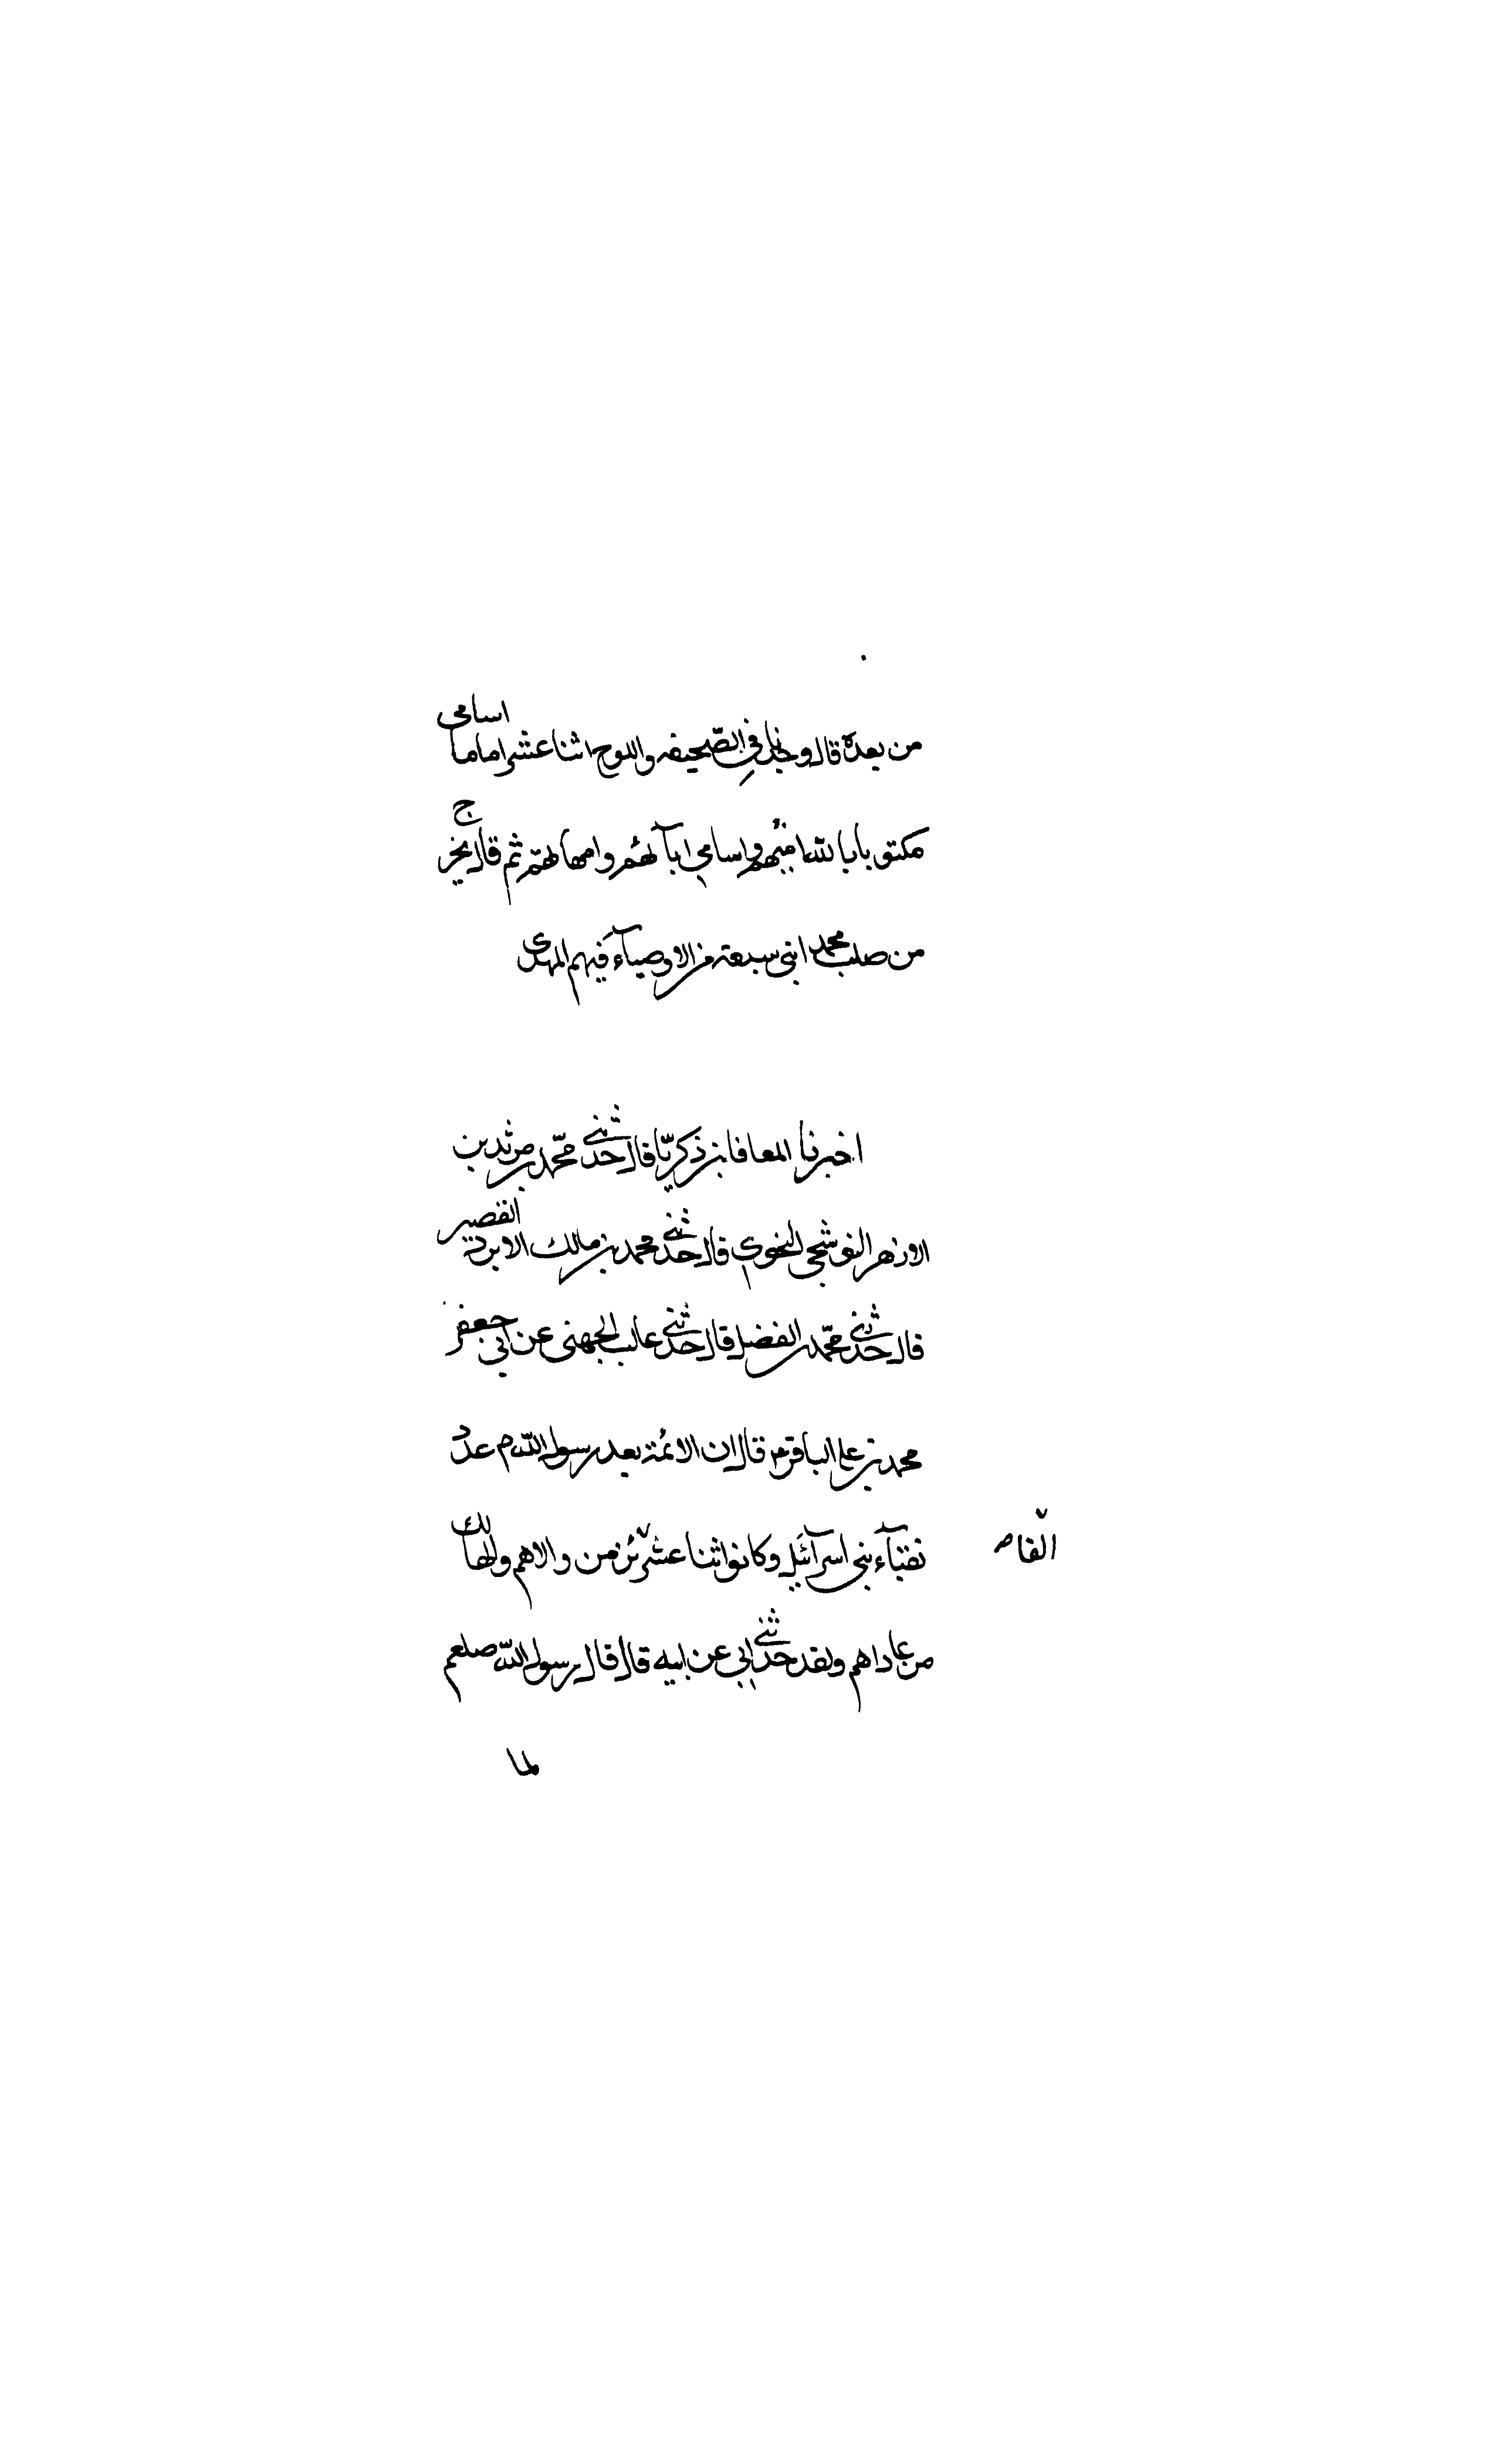 من بعده قال وجدنا في الصّحيفه واللوح اثنا عشر اماما اسامي
مكتوبا بالله امنتهم واسامي ابآئهم وامهاتهم ثم قال يخرج
من صلب محمد ابني سبعة من الاوصيآء فيهم المهدي
اخبرنا المعافا بن ذكريّا قال حدثني محمّد بن مرثد بن
الازهر البوشنجي النحوي قال حدثني محمد بن مالك الابردي القصير
قال حدثني محمّد بن الفضل قال حدثني غالب الجهني عن ابي جعفر
محمد بن علي الباقر ع قال ان الائمة بعد رسول الله م عدد
نقبآء بني اسرآئيل وكانوا اثنا عشر من والاهم والهالك
من عاداهم ولقد حدثني ابي عن ابيه قال قال رسول الله صلعم
لما